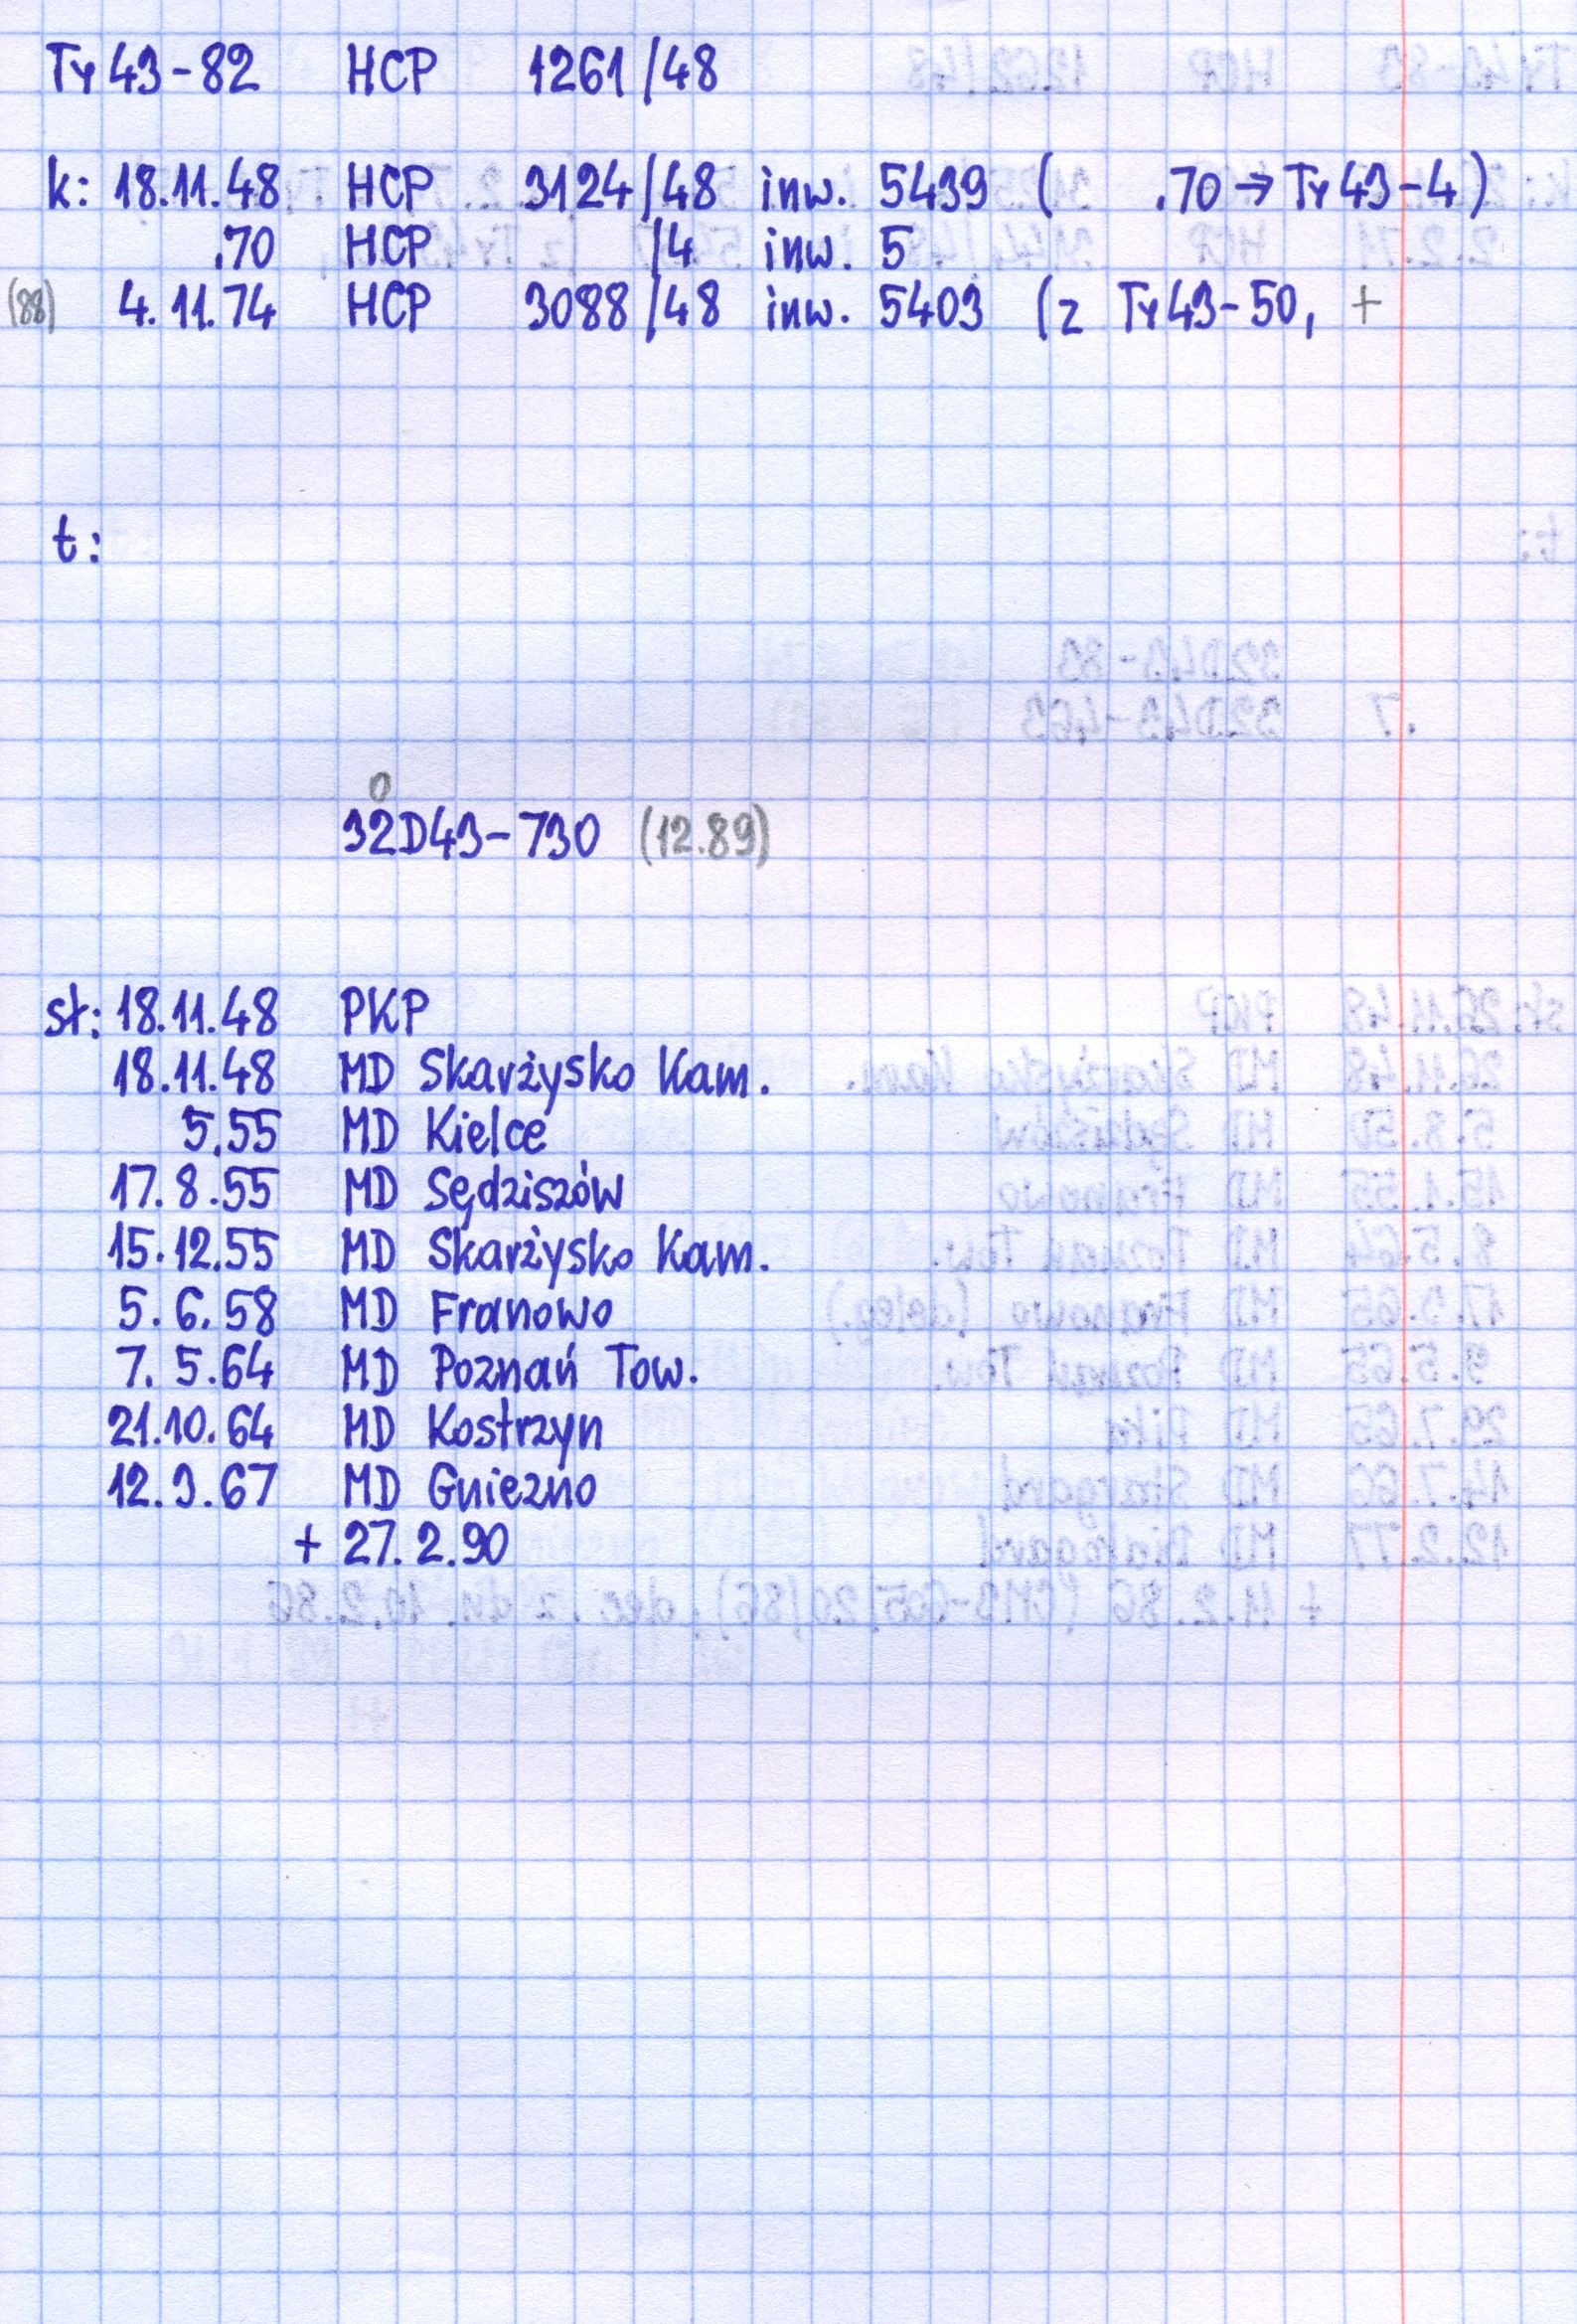 Ty43-82 HCP 1261/48
k: 18.11.48 HCP 3124/48 inw. 5439 ( .70 → Ty43-4 )
.70 HCP /4 inw. 5
(88) 4.11.74 HCP 3088/48 inw. 5403 (z Ty43-50, +
t:
0
32D43-730 (12.89)
st: 18.11.48 PKP
18.11.48 MD Skarżysko Kam.
5.55 MD Kielce
17.8.55 MD Sędziszów
15.12.55 MD Skarżysko Kam.
5.6.58 MD Franowo
7.5.64 MD Poznań Tow.
21.10.64 MD Kostrzyn
12.3.67 MD Gniezno
+ 27.2.90